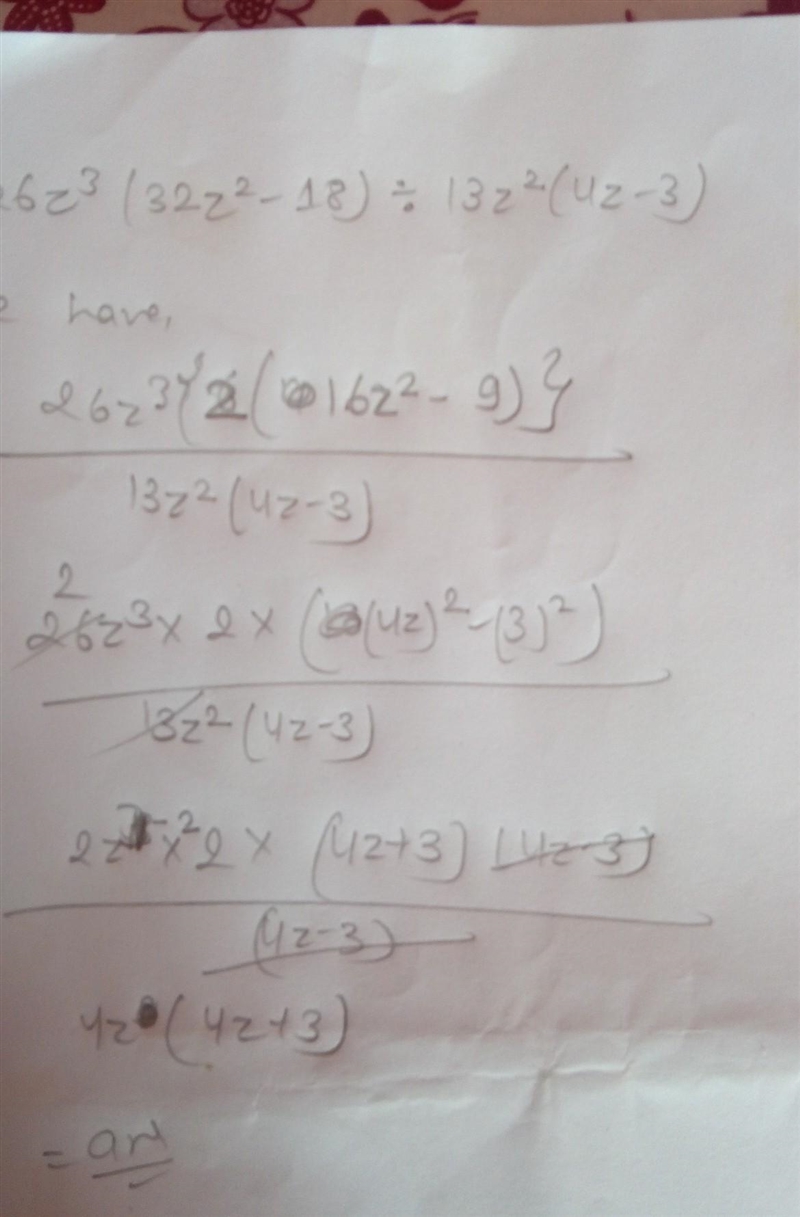 6z³ (32z² - 18) ÷ 13z² (4z - 3)
have,
26z³ {2(16z² - 9)}
13z² (4z - 3)
2
26z³ × 2 × ((4z)² - (3)²)
13z² (4z - 3)
2z × 2 × (4z + 3) (4z - 3)
(4z - 3)
4z (4z + 3)
= ans